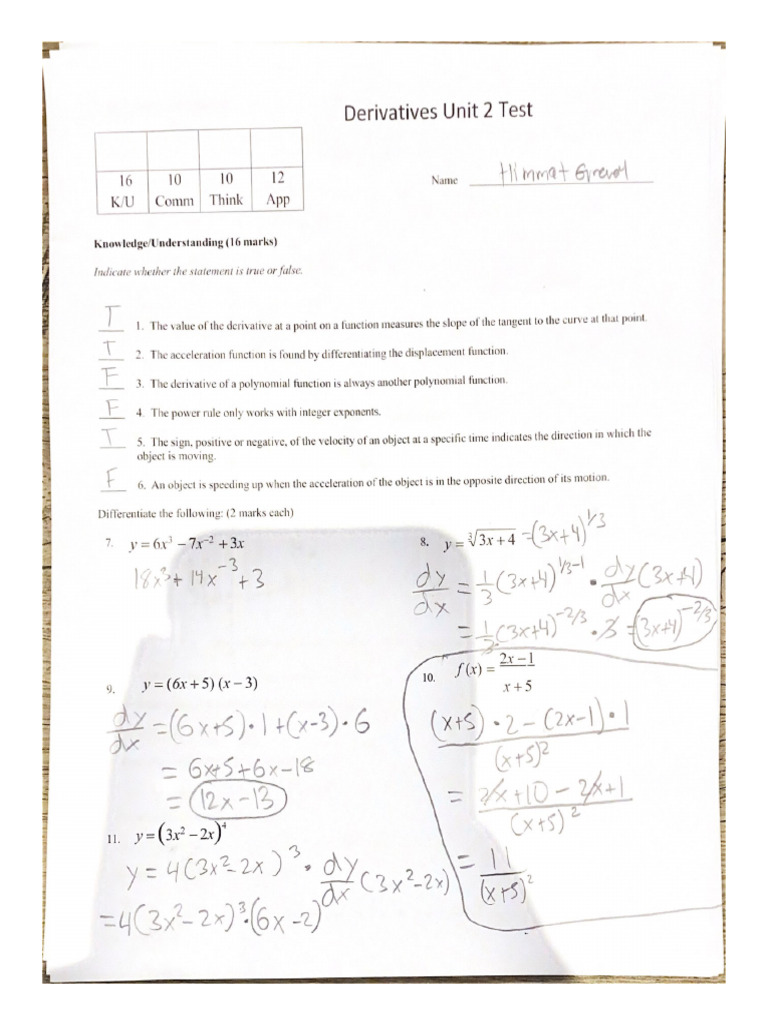 Derivatives Unit 2 Test
16 10 10 12
K/U Comm Think App
Name Himmat Grewal
Knowledge/Understanding (16 marks)
Indicate whether the statement is true or false.
T 1. The value of the derivative at a point on a function measures the slope of the tangent to the curve at that point.
T 2. The acceleration function is found by differentiating the displacement function.
F 3. The derivative of a polynomial function is always another polynomial function.
F 4. The power rule only works with integer exponents.
T 5. The sign, positive or negative, of the velocity of an object at a specific time indicates the direction in which the
object is moving.
F 6. An object is speeding up when the acceleration of the object is in the opposite direction of its motion.
Differentiate the following: (2 marks each)
7. y = 6x³ − 7x⁻² + 3x
18x³ + 14x⁻³ + 3
8. y = ∛(3x + 4) = (3x+4)^1/3
dy/dx = 1/3 (3x+4)^1/3-1 • dy/dx (3x+4)
= 1/3 (3x+4)^-2/3 • 3 = (3x+4)^-2/3
9. y = (6x + 5) (x − 3)
dy/dx = (6x+5)•1+(x-3)•6
= 6x+5+6x-18
= 12x-13
10. f(x) = (2x − 1)/(x + 5)
(x+5)•2-(2x-1)•1
(x+5)²
= 2x+10-2x+1
(x+5)²
= 11
(x+5)²
11. y = (3x² − 2x)⁴
y = 4(3x²-2x)³ • dy/dx (3x²-2x)
= 4(3x²-2x)³•(6x-2)